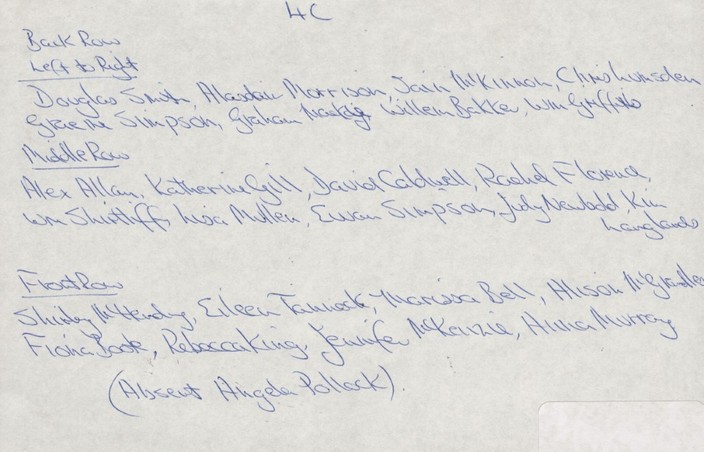 4C
Back Row
Left to Right
Douglas Smith, Alastair Morrison, Iain McKinnon, Chris Lumsden
Graeme Simpson, Graham Willem Bakker, Wm Griffiths
Middle Row
Alex Allan, Katherine Gill, David Caldwell, Rachel Florence,
Wm Shirtliff, Lisa Mullen, Ewan Simpson, Judy Newbold, Kim
Langlands
Front Row
Shirley McHendry, Eileen Tannock, Marissa Bell, Alison
Fiona Book, Rebecca King, Jennifer McKenzie, Anna Murray
(Absent Angela Pollock)